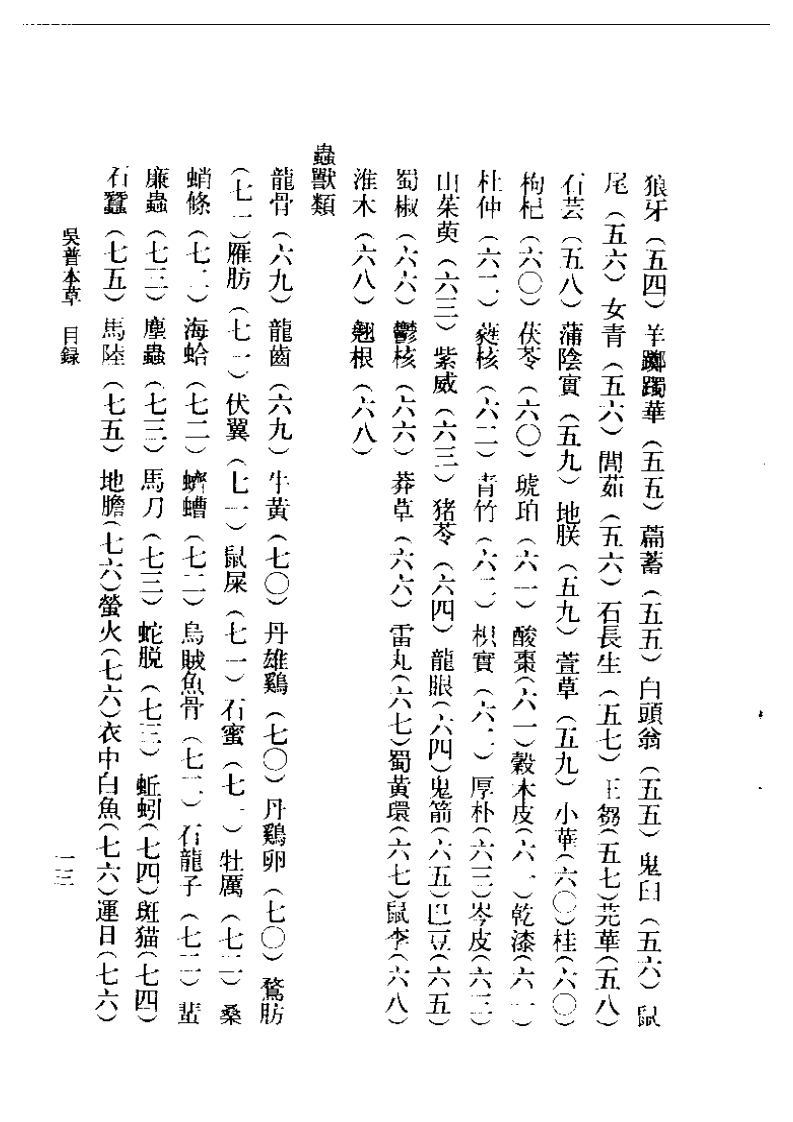 狼牙（五四）羊躑躅華（五五）萹蓄（五五）白頭翁（五五）鬼臼（五六）鼠
尾（五六）女青（五六）閭茹（五六）石長生（五七）王芻（五七）芫華（五八）
石芸（五八）蒲陰實（五九）地朕（五九）萱草（五九）小華（六〇）桂（六〇）
枸杞（六〇）茯苓（六〇）琥珀（六一）酸棗（六一）穀木皮（六一）乾漆（六一）
杜仲（六二）蕤核（六二）青竹（六二）枳實（六二）厚朴（六三）岑皮（六三）
山茱萸（六三）紫威（六三）猪苓（六四）龍眼（六四）鬼箭（六五）巴豆（六五）
蜀椒（六六）鬱核（六六）莽草（六六）雷丸（六七）蜀黃環（六七）鼠李（六八）
淮木（六八）翹根（六八）
蟲獸類
龍骨（六九）龍齒（六九）牛黃（七〇）丹雄鷄（七〇）丹鷄卵（七〇）鶩肪
（七一）雁肪（七一）伏翼（七一）鼠屎（七一）石蜜（七一）牡厲（七二）桑
蛸條（七二）海蛤（七二）蠐螬（七二）烏賊魚骨（七二）石龍子（七三）蜚
廉蟲（七三）䗪蟲（七三）馬刀（七三）蛇脱（七三）蚯蚓（七四）斑猫（七四）
石蠶（七五）馬陸（七五）地膽（七六）螢火（七六）衣中白魚（七六）運日（七六）
吳普本草 目録
一三